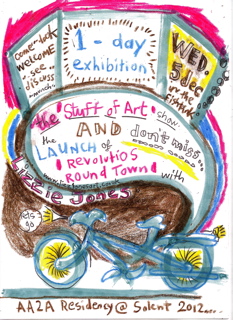 come-look
welcome
see...
discuss
1 - day
exhibition
WED.
5 dec
the Stuff of Art show.
AND don't miss...
the LAUNCH of
Revolutios
Round Town
with
Lizzie Jones
lets
go
AA2A Residency @ Solent 2012...